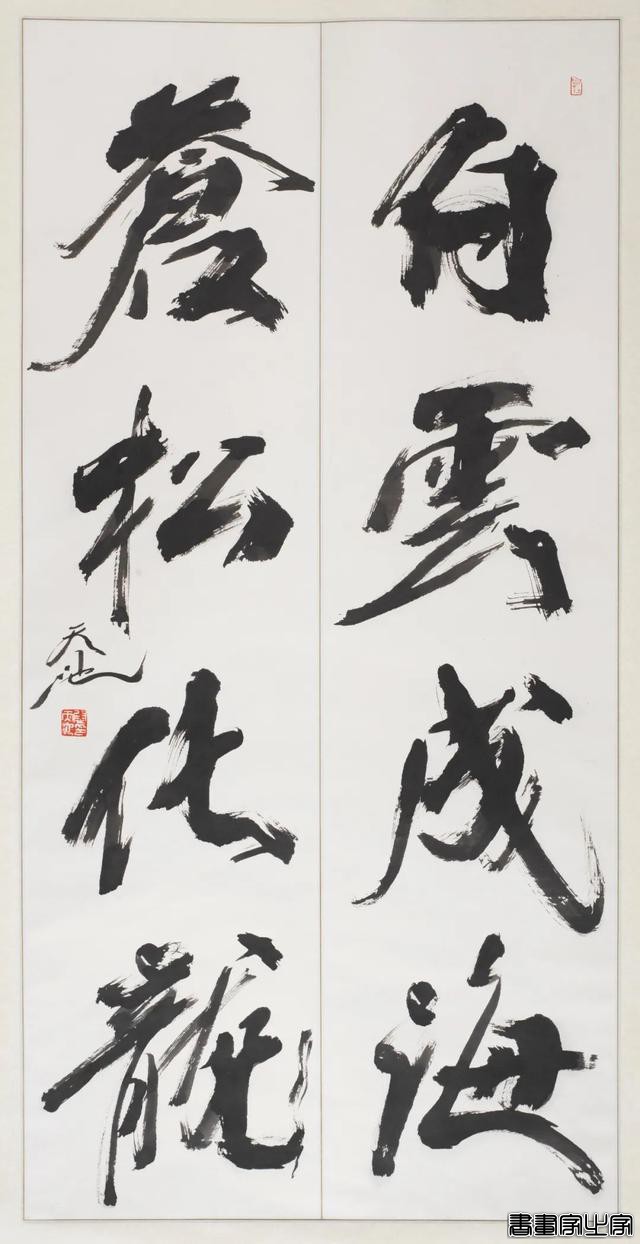 白雲成海
蒼松化龍
天池
書畫家之家